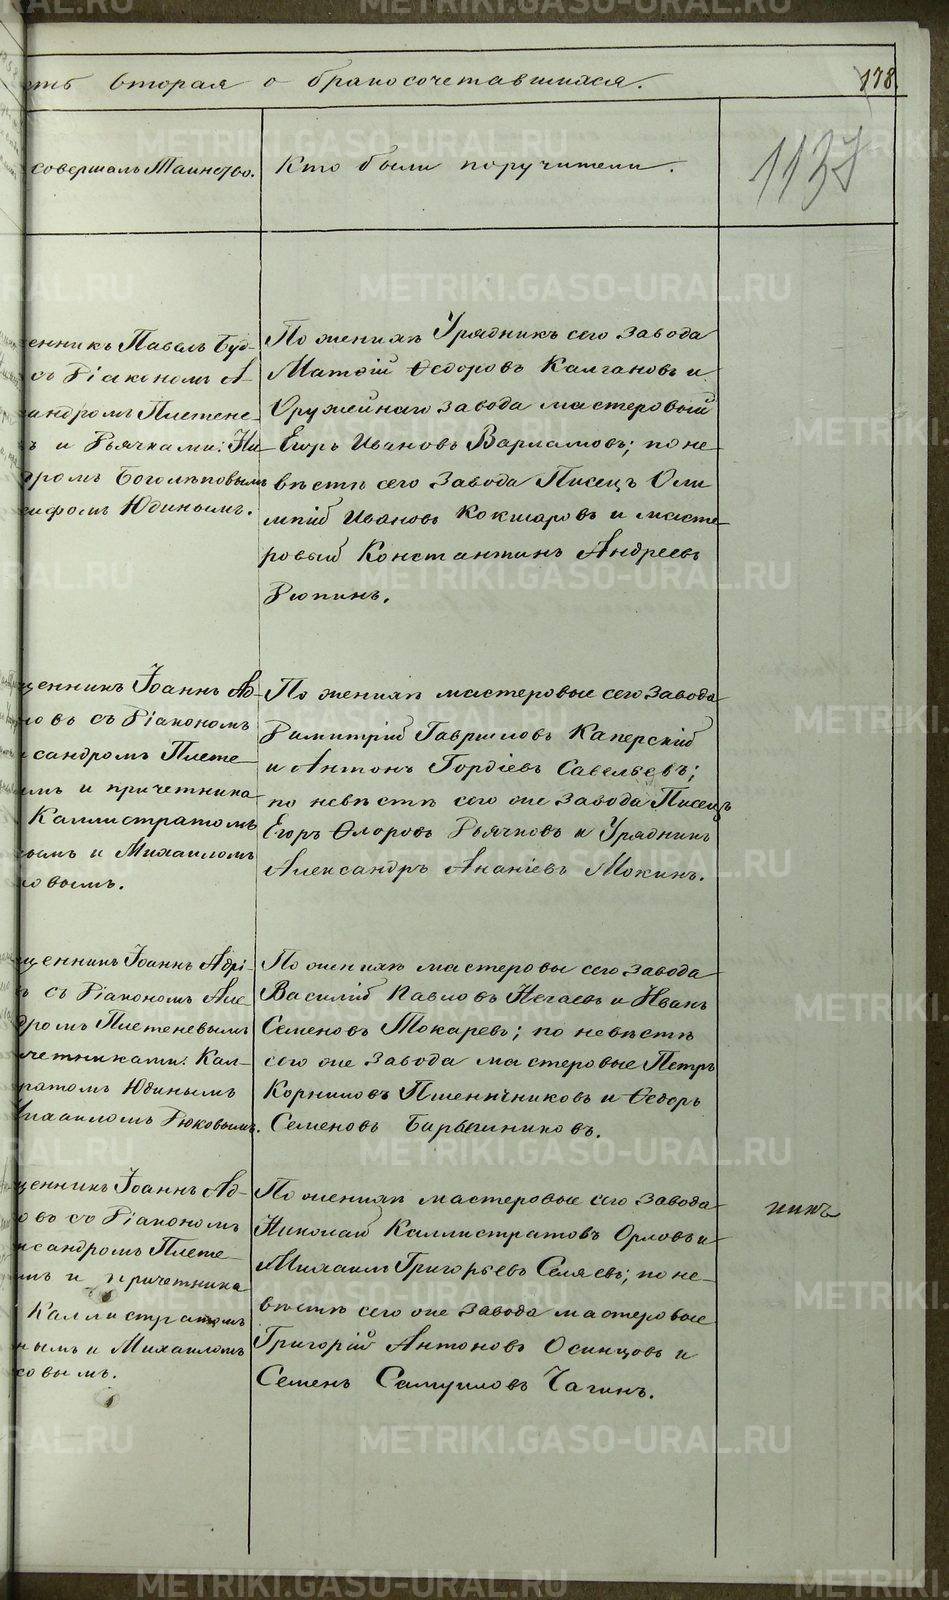 сть вторая о бракосочетавшихся.
178
совершалъ Таинство.
Кто были поручители.
1137
енникъ Павелъ Буд-
съ Діакономъ А-
андромъ Плетене-
ъ и Дьячками: Ни-
ромъ Боголѣповымъ
сифомъ Юдинымъ.
По женихѣ Урядникъ сего завода
Матѳій Ѳедоровъ Калгановъ и
Оружейнаго завода мастеровый
Егоръ Ивановъ Варламовъ; по не-
вѣстѣ сего Завода Писецъ Оли
мпій Ивановъ Кокшаровъ и масте
ровый Константинъ Андреевъ
Рюпинъ.
щенникъ Іоаннъ Ад-
новъ съ Діакономъ
сандромъ Плете-
ымъ и причетника
Каллистратомъ
нымъ и Михаиломъ
ковымъ.
По женихѣ мастеровые сего Завода
Димитрій Гавриловъ Каперскій
и Антонъ Гордіевъ Савельевъ;
по невѣстѣ сего же Завода Писецъ
Егоръ Флоровъ Дьячковъ и Урядникъ
Александръ Ананіевъ Мокинъ.
щенникъ Іоаннъ Адрі-
ъ съ Діакономъ Але
дромъ Плетеневымъ
четниками: Кал-
ратомъ Юдинымъ
Михаиломъ Рюковымъ.
По женихѣ мастеровы сего завода
Василій Павловъ Нечаевъ и Иванъ
Семеновъ Токаревъ; по невѣстѣ
сего же Завода мастеровые Петръ
Корниловъ Пшеничниковъ и Ѳедоръ
Семеновъ Барышниковъ.
щенникъ Іоаннъ Ад-
овъ съ Діакономъ
ксандромъ Плете-
мъ и причетника
Каллистратомъ
нымъ и Михаиломъ
ковымъ.
По женихѣ мастеровые сего Завода
Николай Каллистратовъ Орловъ и
Михаилъ Григорьевъ Селяевъ; по не-
вѣстѣ сего же завода мастеровые
Григорій Антоновъ Осинцовъ и
Семенъ Самуиловъ Чагинъ.
METRIKI.GASO-URAL.RU